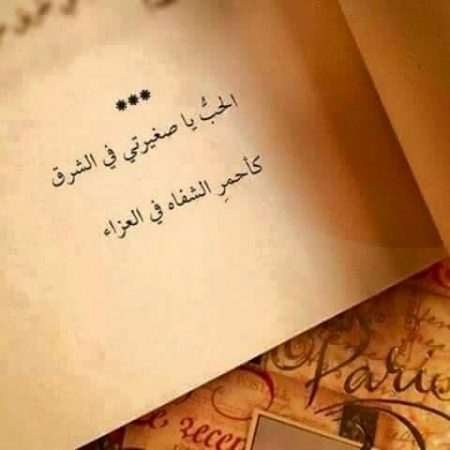 ***
الحبُّ يا صغيرتي في الشرق
كأحمرِ الشفاه في العزاء
Paris
recep